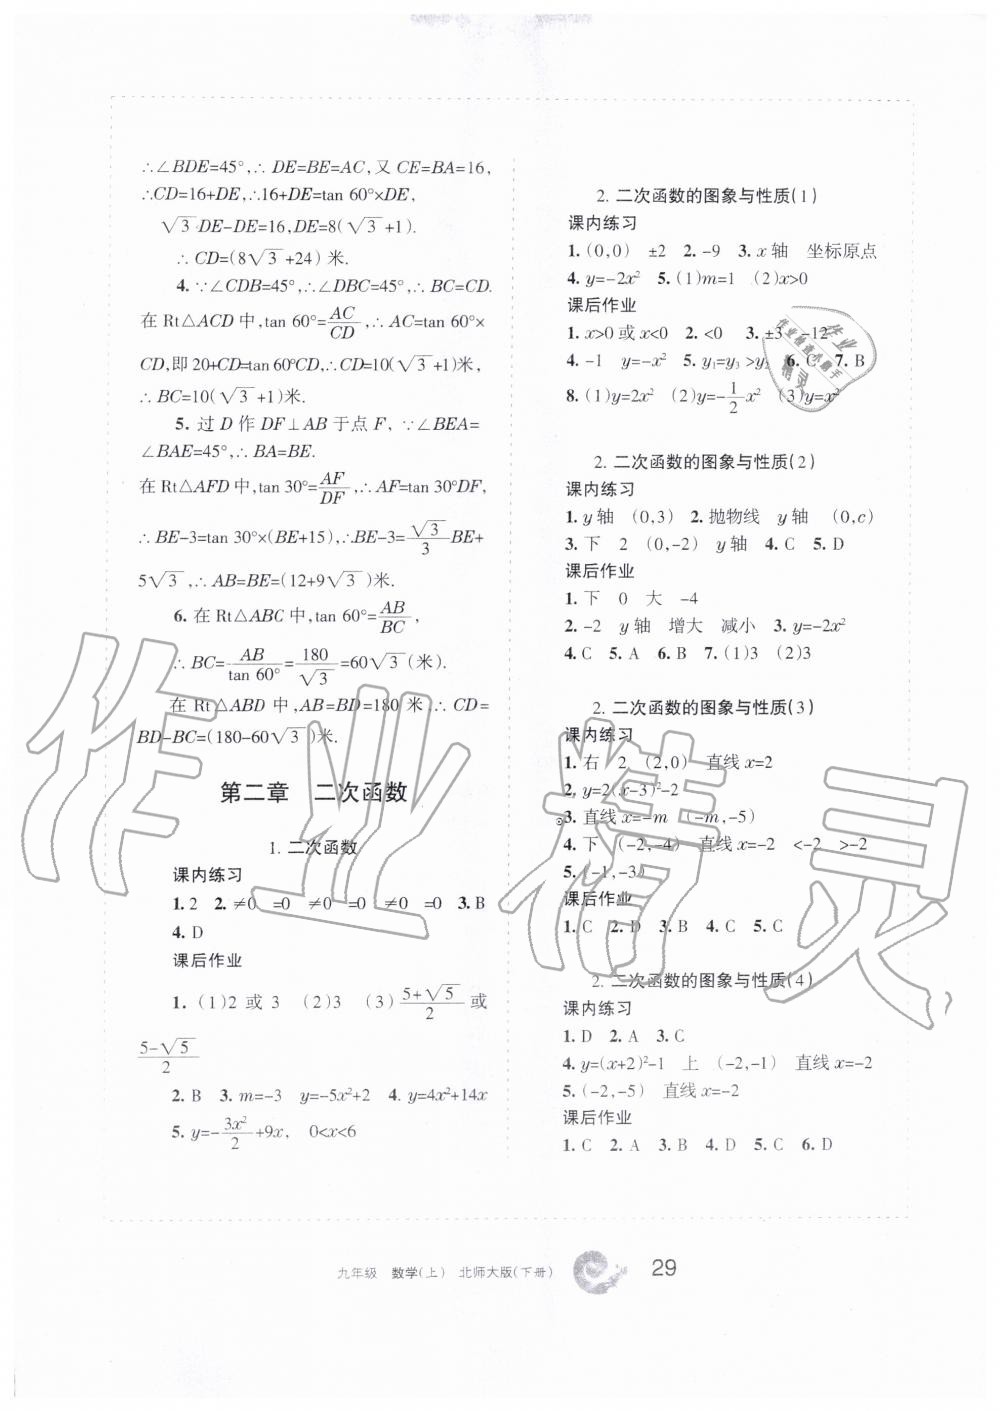 ∴∠BDE=45°,∴ DE=BE=AC,又 CE=BA=16,
∴CD=16+DE,∴16+DE=tan 60°×DE,
√3 DE-DE=16,DE=8(√3+1).
∴ CD=(8√3+24) 米.
4. ∵∠CDB=45°,∴∠DBC=45°,∴ BC=CD.
在 Rt△ACD 中,tan 60°=AC/CD,∴ AC=tan 60°×
CD,即 20+CD=tan 60°CD,∴ CD=10(√3+1)米,
∴ BC=10(√3+1)米.
5. 过 D 作 DF⊥AB 于点 F, ∵∠BEA=
∠BAE=45°,∴ BA=BE.
在 Rt△AFD 中,tan 30°=AF/DF,∴ AF=tan 30°DF,
∴ BE-3=tan 30°×(BE+15),∴BE-3=√3/3 BE+
5√3,∴ AB=BE=(12+9√3)米.
6. 在 Rt△ABC 中, tan 60°=AB/BC,
∴ BC=AB/tan 60°=180/√3=60√3(米).
在 Rt△ABD 中,AB=BD=180 米,∴ CD=
BD-BC=(180-60√3)米.
第二章 二次函数
1. 二次函数
课内练习
1. 2 2. ≠0 =0 ≠0 =0 ≠0 =0 3. B
4. D
课后作业
1. (1)2 或 3 (2)3 (3)(5+√5)/2或
(5-√5)/2
2. B 3. m=-3 y=-5x²+2 4. y=4x²+14x
5. y=-3x²/2+9x, 0<x<6
2. 二次函数的图象与性质(1)
课内练习
1. (0,0) ±2 2. -9 3. x 轴 坐标原点
4. y=-2x² 5. (1)m=1 (2)x>0
课后作业
1. x>0 或 x<0 2. <0 3. ±3 -12
4. -1 y=-x² 5. y₁=y₃ >y₂ 6. C 7. B
8. (1)y=2x² (2)y=-1/2 x² (3)y=x²
2. 二次函数的图象与性质(2)
课内练习
1. y 轴 (0,3) 2. 抛物线 y 轴 (0,c)
3. 下 2 (0,-2) y 轴 4. C 5. D
课后作业
1. 下 0 大 -4
2. -2 y 轴 增大 减小 3. y=-2x²
4. C 5. A 6. B 7. (1)3 (2)3
2. 二次函数的图象与性质(3)
课内练习
1. 右 2 (2,0) 直线 x=2
2. y=2(x-3)²-2
3. 直线 x=-m (-m,-5)
4. 下 (-2,-4) 直线 x=-2 <-2 >-2
5. (-1,-3)
课后作业
1. C 2. D 3. B 4. C 5. C
2. 二次函数的图象与性质(4)
课内练习
1. D 2. A 3. C
4. y=(x+2)²-1 上 (-2,-1) 直线 x=-2
5. (-2,-5) 直线 x=-2
课后作业
1. C 2. A 3. B 4. D 5. C 6. D
九年级 数学(上) 北师大版(下册) 29
作业精灵